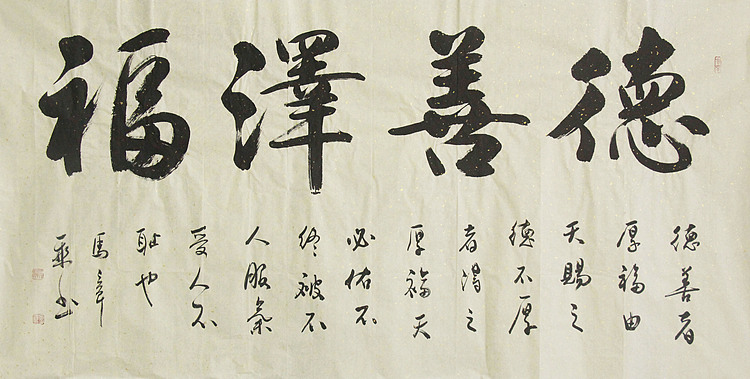 德善澤福
德善者
厚福由
天賜之
德不厚
者得之
厚福天
必佑不
終被不
人服氣
受人不
恥也
馬章
乘书